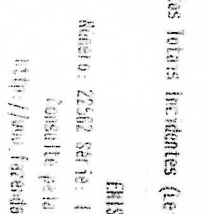 tos Totais Incidentes (Le
EMIS
Número: 22502 Série: 1
Consulte pela
http://www.fazenda